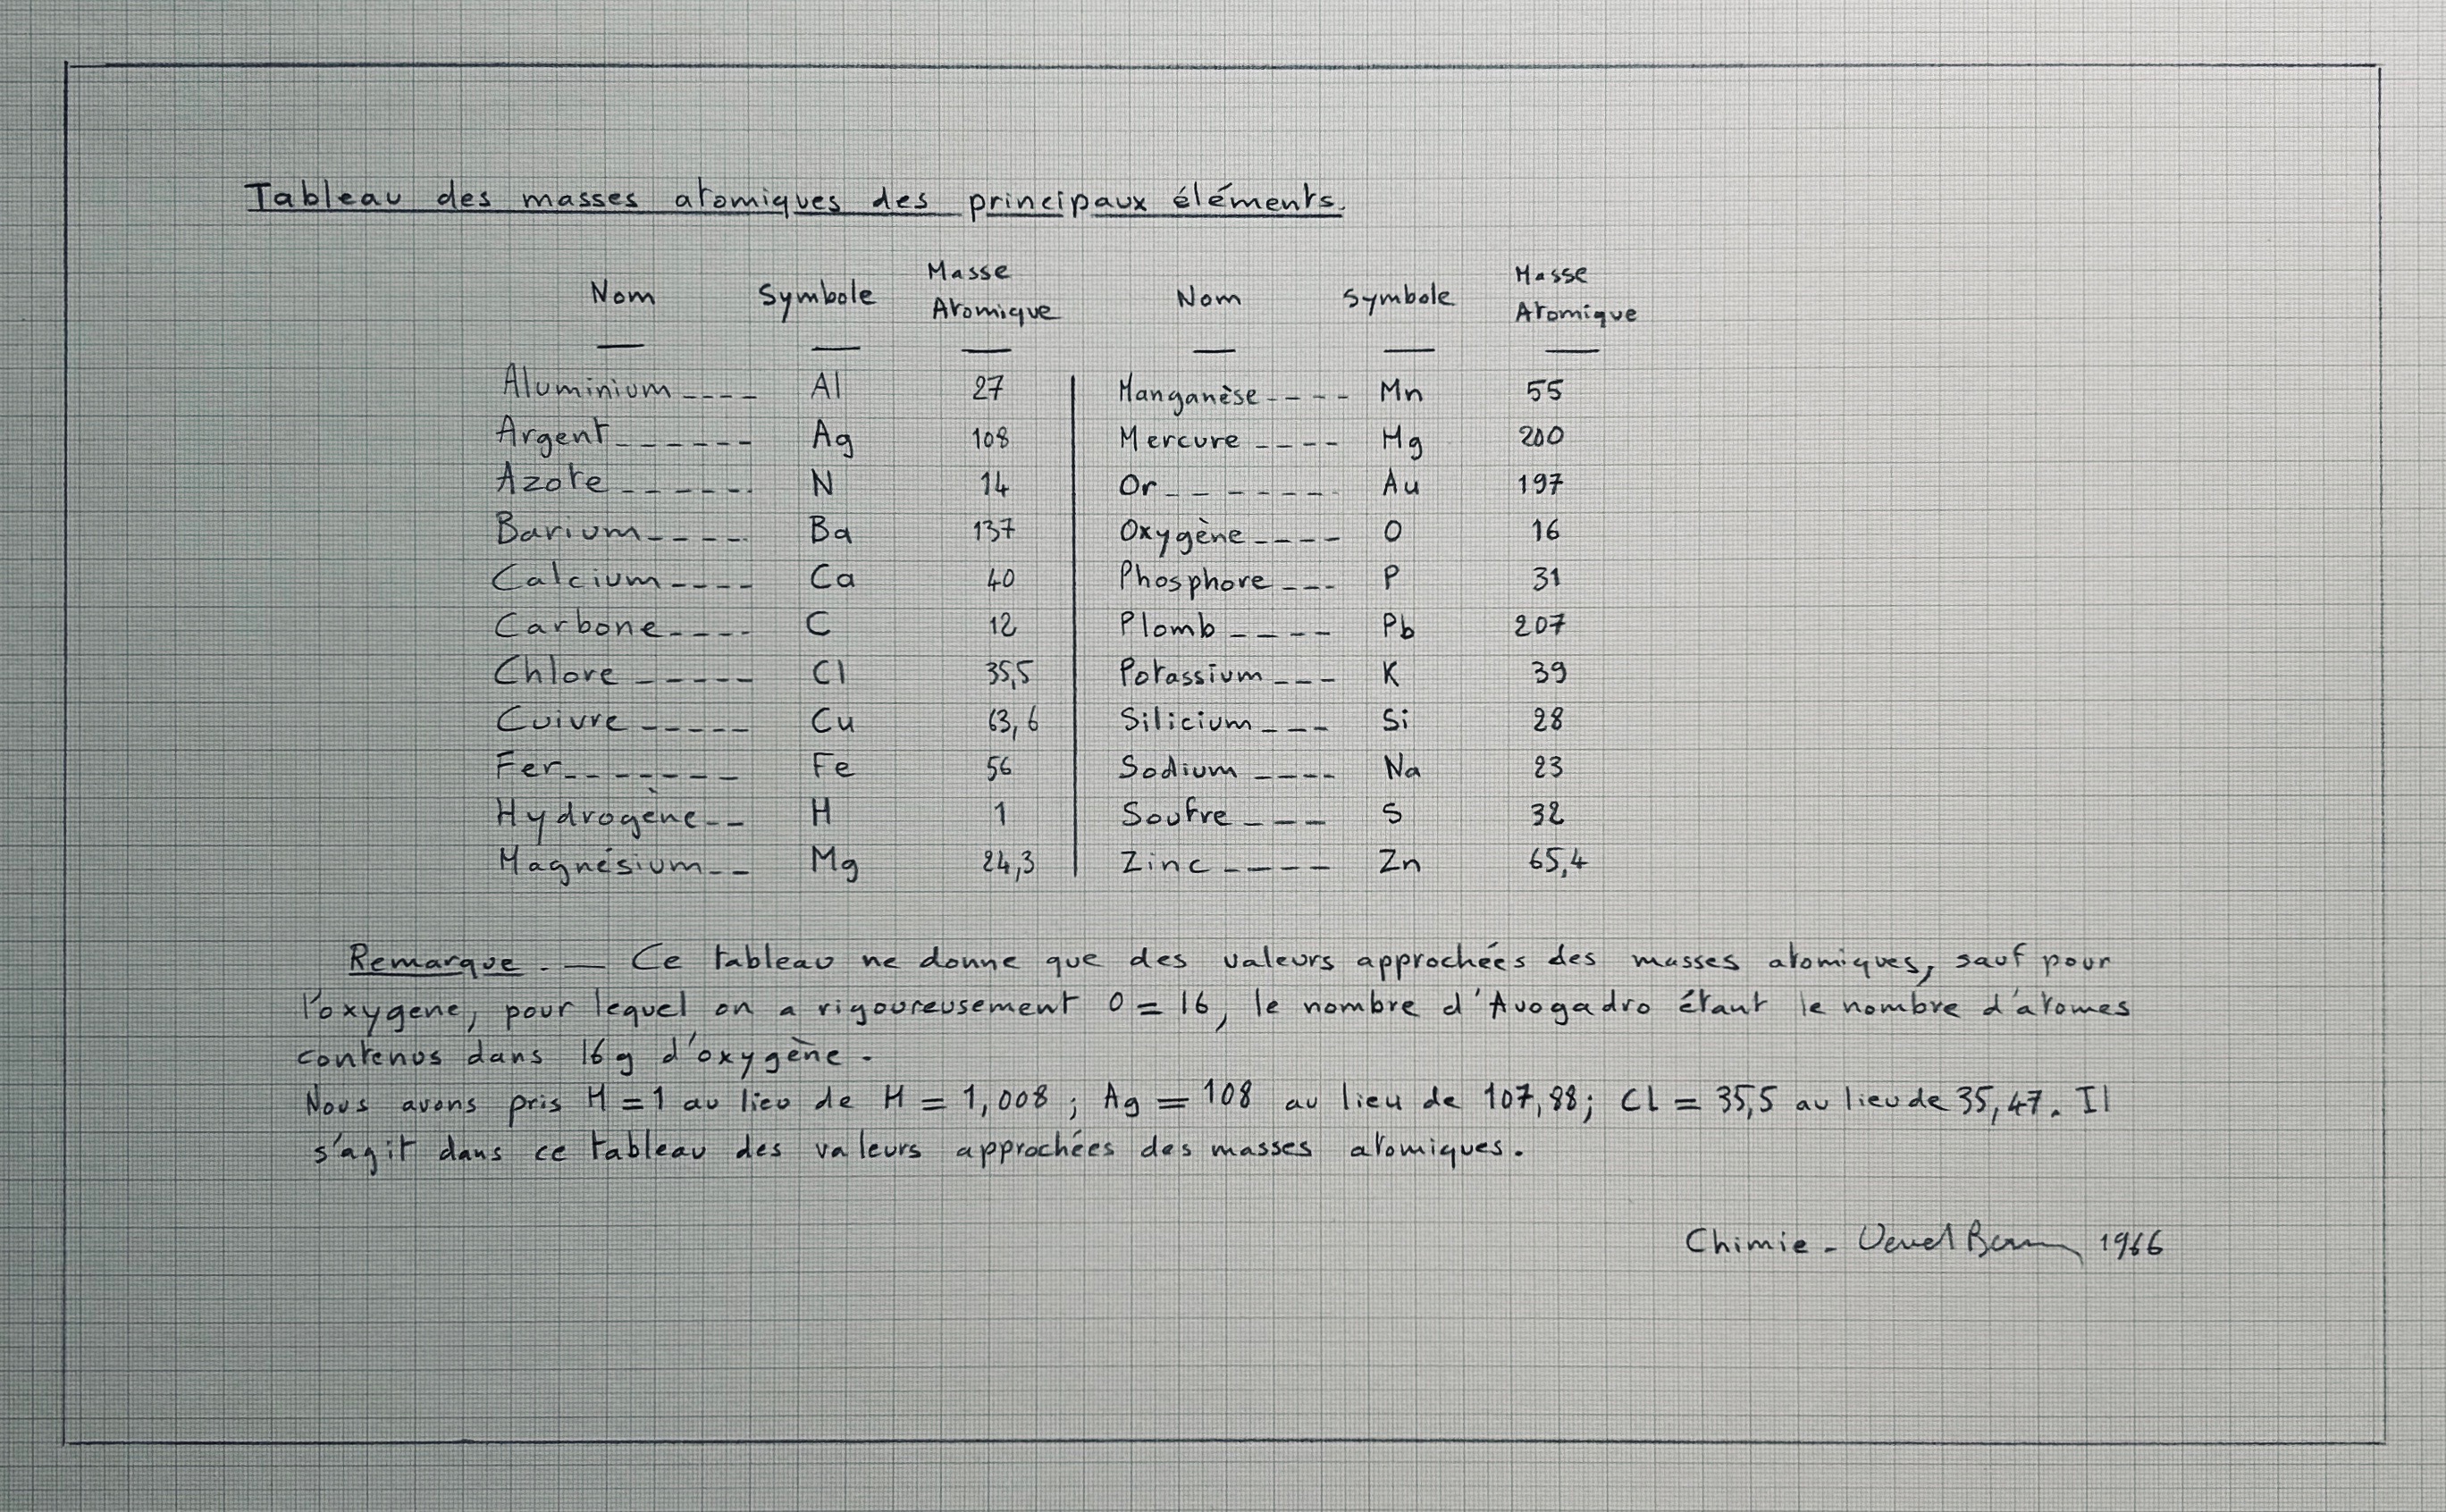 Tableau des masses atomiques des principaux éléments.
Nom Symbole Masse Atomique Nom Symbole Masse Atomique
Aluminium---- Al 27 Manganèse---- Mn 55
Argent------ Ag 108 Mercure ---- Hg 200
Azote------ N 14 Or------ Au 197
Barium----- Ba 137 Oxygène---- O 16
Calcium---- Ca 40 Phosphore --- P 31
Carbone---- C 12 Plomb ---- Pb 207
Chlore ----- Cl 35,5 Potassium--- K 39
Cuivre ----- Cu 63,6 Silicium --- Si 28
Fer------- Fe 56 Sodium ---- Na 23
Hydrogène-- H 1 Soufre --- S 32
Magnésium-- Mg 24,3 Zinc---- Zn 65,4
Remarque. — Ce tableau ne donne que des valeurs approchées des masses atomiques, sauf pour
l'oxygene, pour lequel on a rigoureusement O = 16, le nombre d'Avogadro étant le nombre d'atomes
contenus dans 16 g d'oxygène.
Nous avons pris H = 1 au lieu de H = 1,008 ; Ag = 108 au lieu de 107,88; Cl = 35,5 au lieu de 35,47. Il
s'agit dans ce tableau des valeurs approchées des masses atomiques.
Chimie - 1966